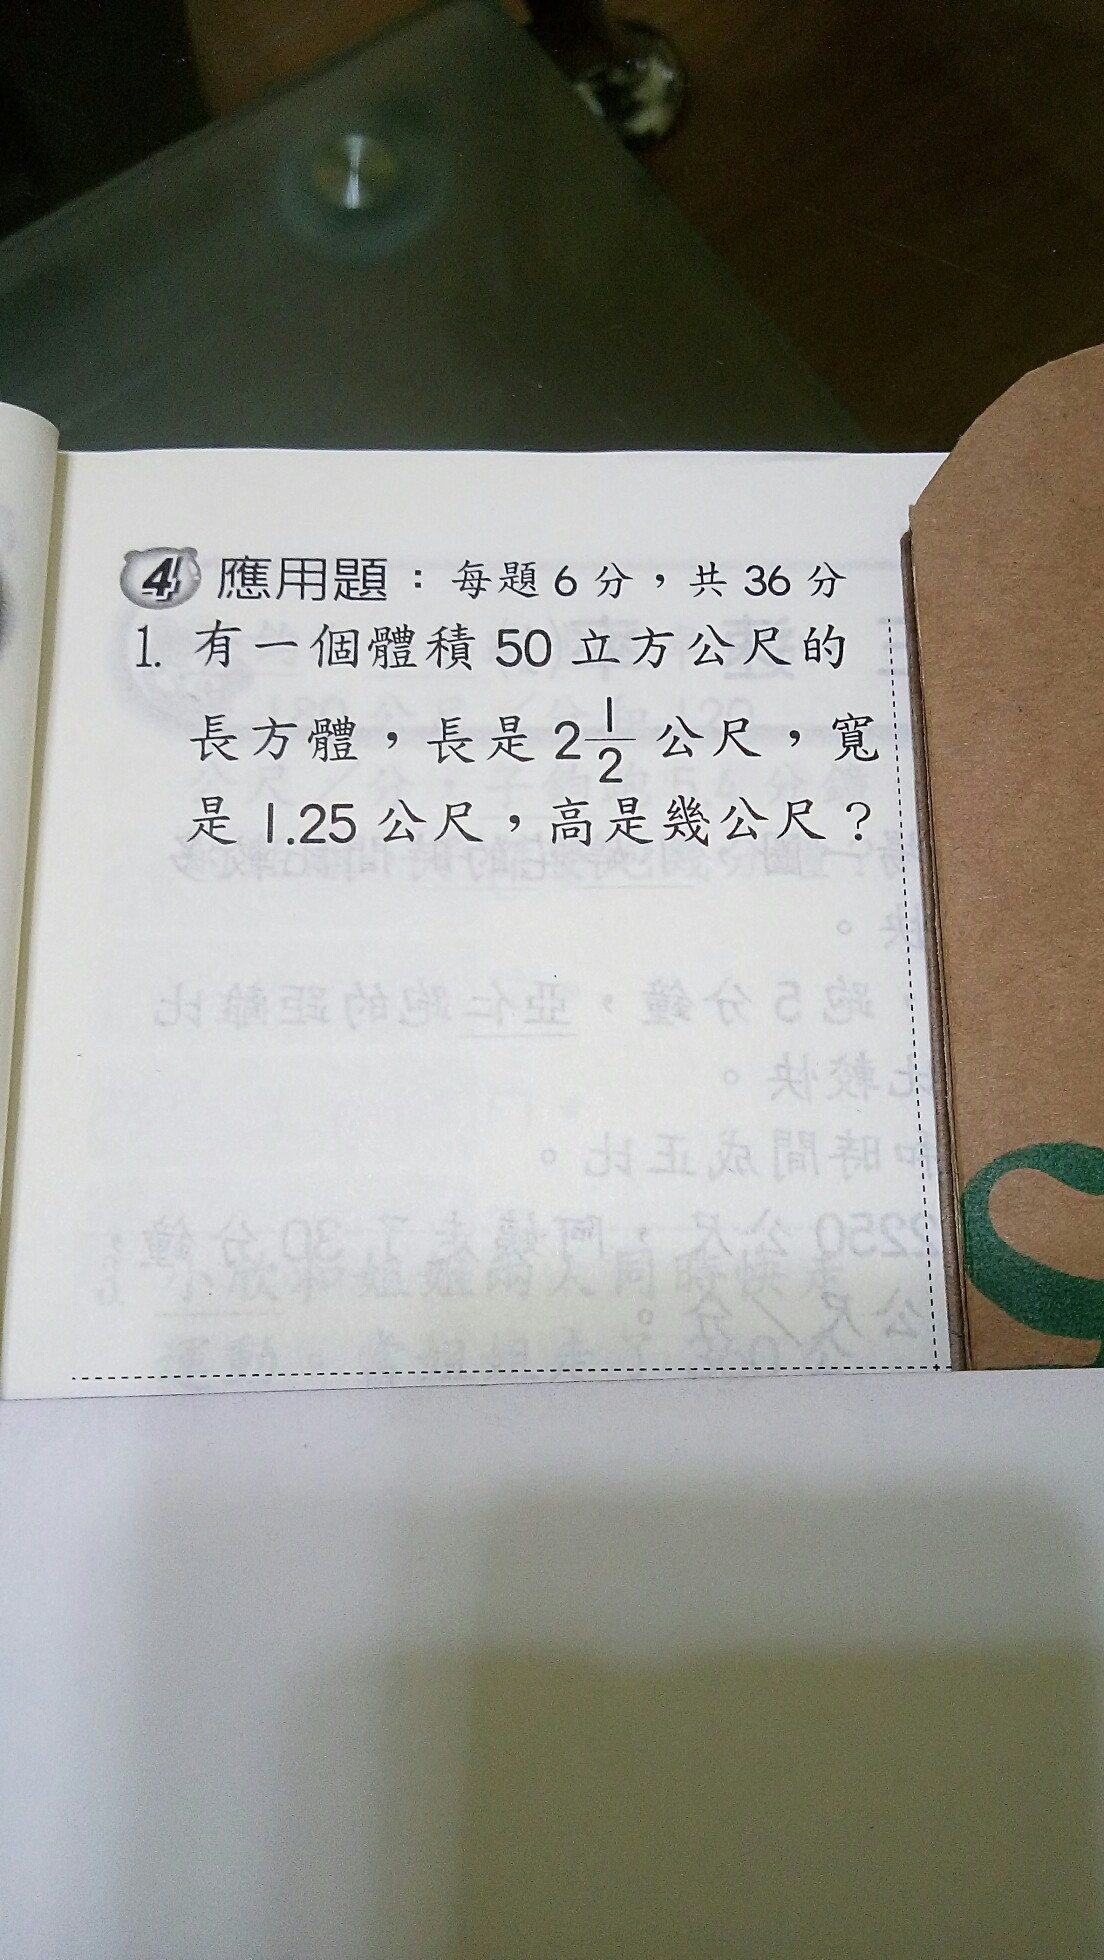 4 應用題：每題6分，共36分
1. 有一個體積50立方公尺的
長方體，長是2 1/2 公尺，寬
是1.25公尺，高是幾公尺？